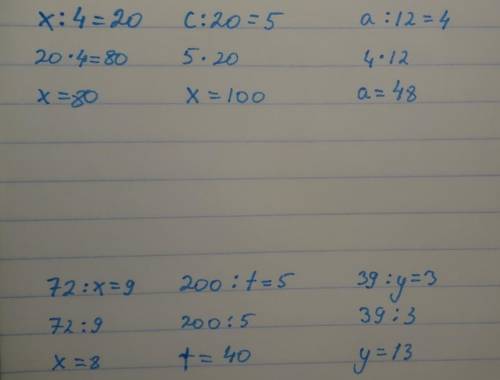 x:4=20 c:20=5 a:12=4
20·4=80 5·20 4·12
x=80 x=100 a=48
72:x=9 200:t=5 39:y=3
72:9 200:5 39:3
x=8 t=40 y=13